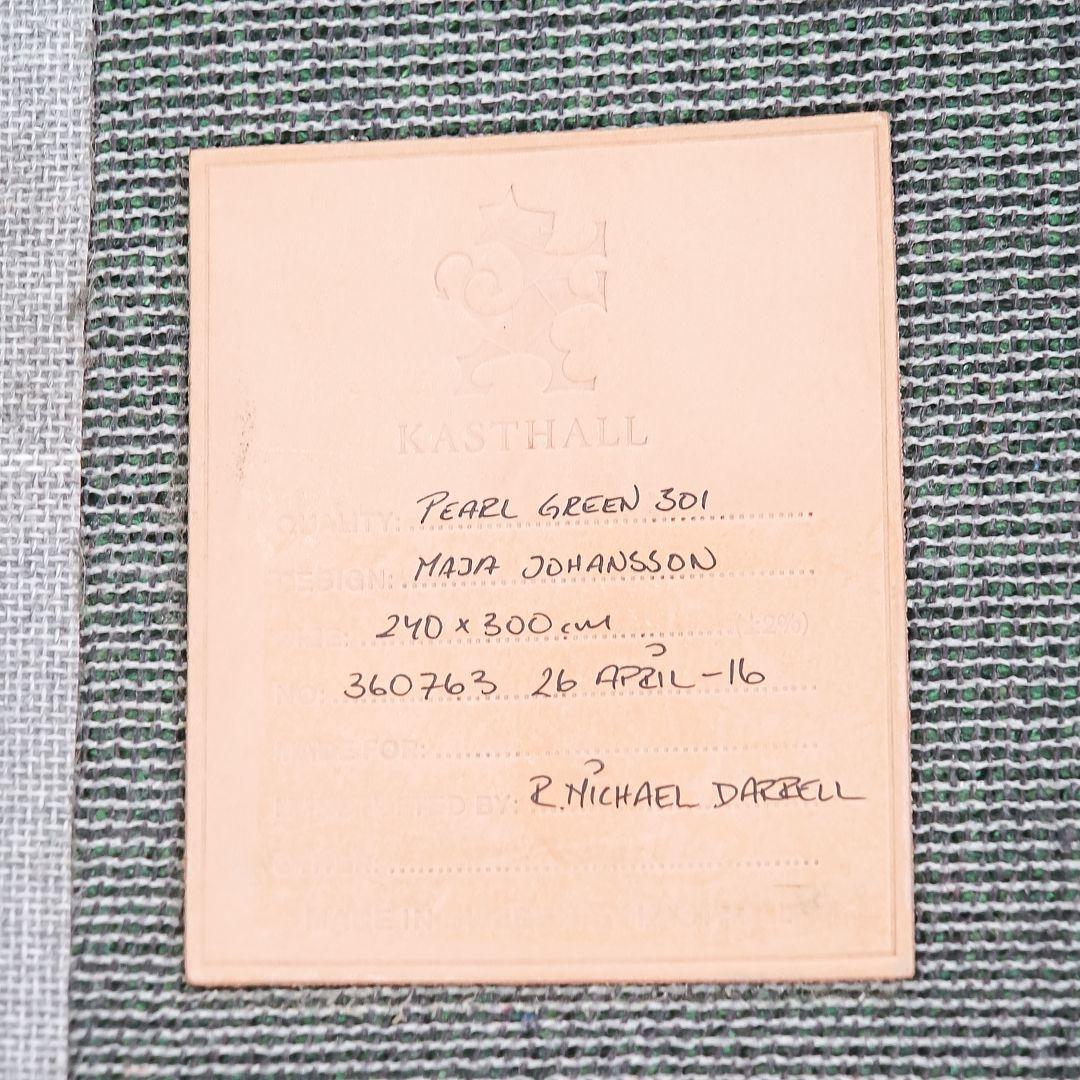 KASTHALL
QUALITY: PEARL GREEN 301
DESIGN: MAJA JOHANSSON
240 x 300 cm (±2%)
NO: 360763 26 APRIL-16
MADE FOR:
BY: R. MICHAEL DARRELL
MADE IN